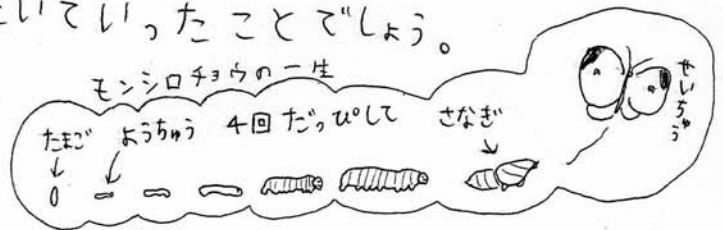 いていったことでしょう。
モンシロチョウの一生
たまご
ようちゅう
4回だっぴして
さなぎ
せいちゅう